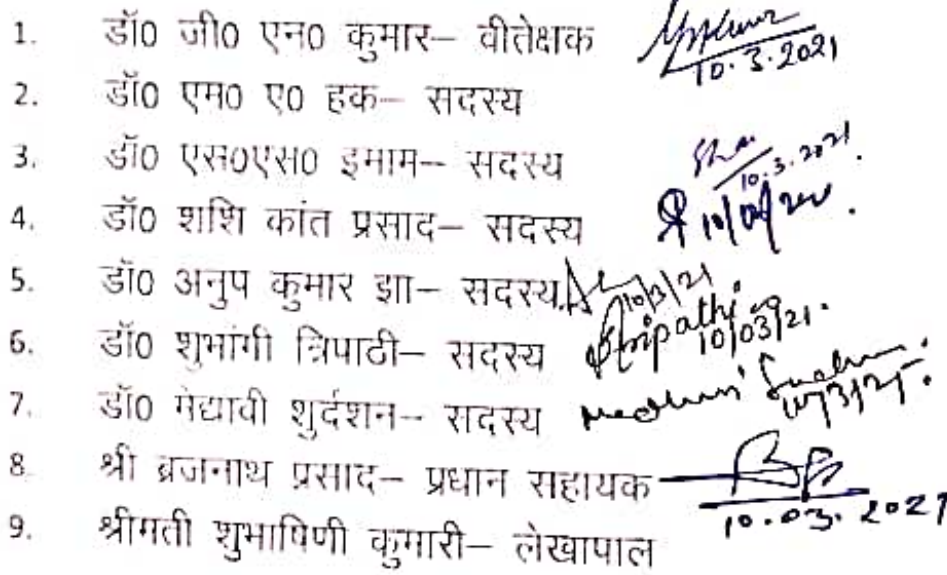 1. डॉ0 जी0 एन0 कुमार– वीतेक्षक
10.3.2021
2. डॉ0 एम0 ए0 हक– सदस्य
3. डॉ0 एस0एस0 इमाम– सदस्य
10.3.2021
4. डॉ0 शशि कांत प्रसाद– सदस्य
5. डॉ0 अनुप कुमार झा– सदस्य
10/3/21
6. डॉ0 शुभांगी त्रिपाठी– सदस्य
Tripathi
10/03/21
7. डॉ0 मेद्यावी शुर्दशन– सदस्य
8. श्री ब्रजनाथ प्रसाद– प्रधान सहायक
10.03.2021
9. श्रीमती शुभाषिणी कुमारी– लेखापाल